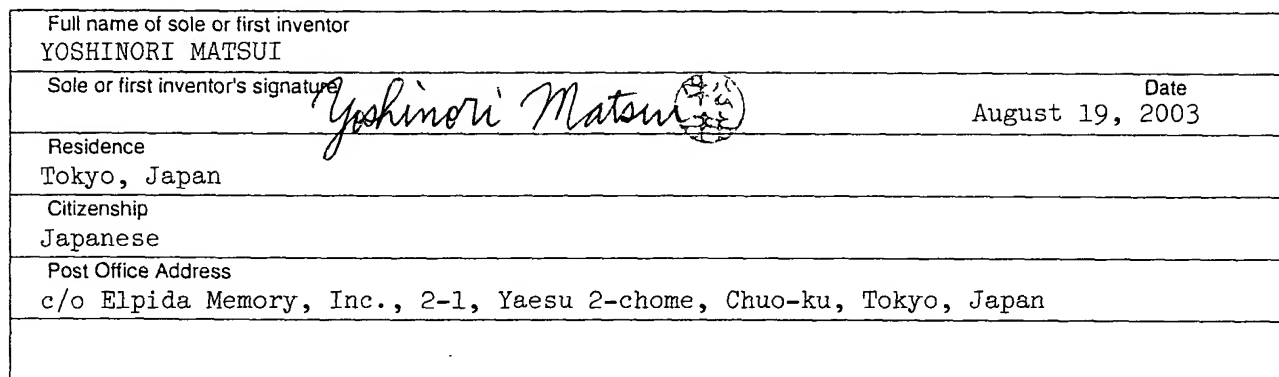 Full name of sole or first inventor
YOSHINORI MATSUI
Sole or first inventor's signature
Yoshinori Matsui
Date
August 19, 2003
Residence
Tokyo, Japan
Citizenship
Japanese
Post Office Address
c/o Elpida Memory, Inc., 2-1, Yaesu 2-chome, Chuo-ku, Tokyo, Japan